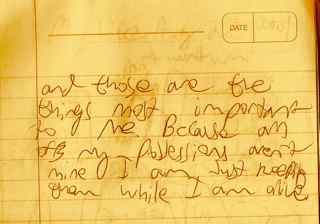 DATE
and those are the
things most important
to me Because all
of my possessions arent
mine I am Just keeping
them while I am alive